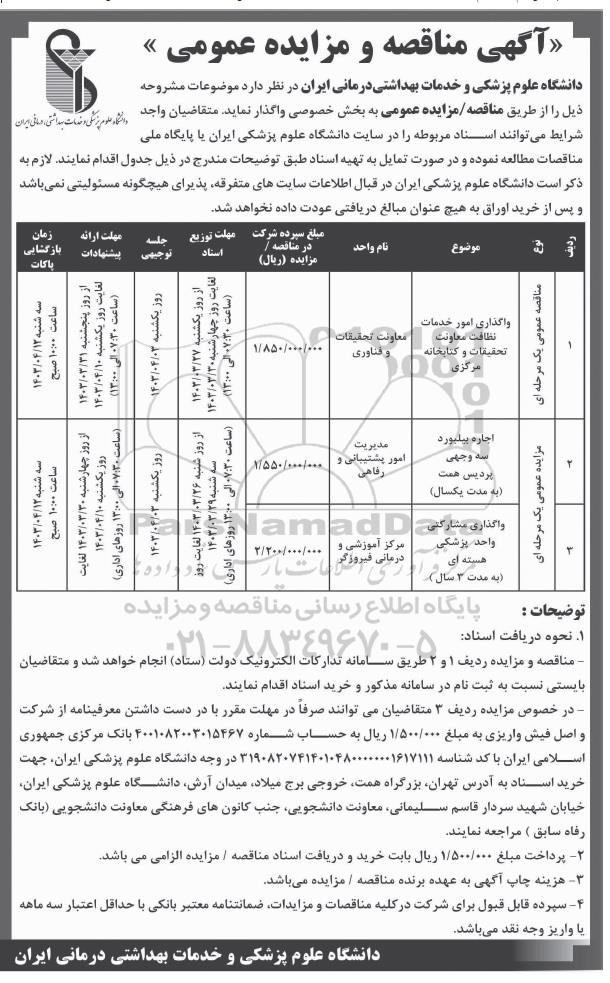 «آگهی مناقصه و مزایده عمومی»
دانشگاه علوم پزشکی و خدمات بهداشتی، درمانی ایران
دانشگاه علوم پزشکی و خدمات بهداشتی‌درمانی ایران در نظر دارد موضوعات مشروحه
ذیل را از طریق مناقصه/مزایده عمومی به بخش خصوصی واگذار نماید. متقاضیان واجد
شرایط می‌توانند اسناد مربوطه را در سایت دانشگاه علوم پزشکی ایران یا پایگاه ملی
مناقصات مطالعه نموده و در صورت تمایل به تهیه اسناد طبق توضیحات مندرج در ذیل جدول اقدام نمایند. لازم به
ذکر است دانشگاه علوم پزشکی ایران در قبال اطلاعات سایت های متفرقه، پذیرای هیچگونه مسئولیتی نمی‌باشد
و پس از خرید اوراق به هیچ عنوان مبالغ دریافتی عودت داده نخواهد شد.
ردیف
نوع
موضوع
نام واحد
مبلغ سپرده شرکت
در مناقصه /
مزایده (ریال)
مهلت توزیع
اسناد
جلسه
توجیهی
مهلت ارائه
پیشنهادات
زمان
بازگشایی
پاکات
۱
مناقصه عمومی یک مرحله ای
واگذاری امور خدمات
نظافت معاونت
تحقیقات و کتابخانه
مرکزی
معاونت تحقیقات
و فناوری
۱/۸۵۰/۰۰۰/۰۰۰
از روز یکشنبه ۱۴۰۳/۰۳/۲۷
لغایت روز چهارشنبه ۱۴۰۳/۰۳/۳۰
(ساعت ۰۷:۳۰ الی ۱۳:۰۰)
روز یکشنبه ۱۴۰۳/۰۴/۰۳
از روز پنجشنبه ۱۴۰۳/۰۳/۳۱
لغایت روز یکشنبه ۱۴۰۳/۰۴/۱۰
(ساعت ۰۷:۳۰ الی ۱۳:۰۰)
سه شنبه ۱۴۰۳/۰۴/۱۲
ساعت ۱۰:۰۰ صبح
۲
مزایده عمومی یک مرحله ای
اجاره بیلبورد
سه وجهی
پردیس همت
(به مدت یکسال)
مدیریت
امور پشتیبانی و
رفاهی
۱/۵۵۰/۰۰۰/۰۰۰
از روز شنبه ۱۴۰۳/۰۳/۲۶ لغایت روز
سه شنبه ۱۴۰۳/۰۳/۲۹
(ساعت ۰۷:۳۰ الی ۱۳:۰۰ روزهای اداری)
روز یکشنبه ۱۴۰۳/۰۴/۰۳
از روز چهارشنبه ۱۴۰۳/۰۳/۳۰ لغایت
روز یکشنبه ۱۴۰۳/۰۴/۱۰
(ساعت ۰۷:۳۰ الی ۱۳:۰۰ روزهای اداری)
سه شنبه ۱۴۰۳/۰۴/۱۲
ساعت ۱۰:۰۰ صبح
۳
واگذاری مشارکتی
واحد پزشکی
هسته ای
(به مدت ۳ سال)
مرکز آموزشی و
درمانی فیروزگر
۲/۲۰۰/۰۰۰/۰۰۰
ParsNamadData
پایگاه اطلاع رسانی مناقصه و مزایده
۰۲۱-۸۸۳۴۹۶۷۰-۵
توضیحات :
۱. نحوه دریافت اسناد:
- مناقصه و مزایده ردیف ۱ و ۲ طریق سامانه تدارکات الکترونیک دولت (ستاد) انجام خواهد شد و متقاضیان
بایستی نسبت به ثبت نام در سامانه مذکور و خرید اسناد اقدام نمایند.
- در خصوص مزایده ردیف ۳ متقاضیان می توانند صرفاً در مهلت مقرر با در دست داشتن معرفینامه از شرکت
و اصل فیش واریزی به مبلغ ۱/۵۰۰/۰۰۰ ریال به حساب شماره ۴۰۰۱۰۸۲۰۰۳۰۱۵۴۶۷ بانک مرکزی جمهوری
اسلامی ایران با کد شناسه ۳۱۹۰۸۲۰۷۴۱۴۰۱۰۴۸۰۰۰۰۰۰۰۱۶۱۷۱۱۱ در وجه دانشگاه علوم پزشکی ایران، جهت
خرید اسناد به آدرس تهران، بزرگراه همت، خروجی برج میلاد، میدان آرش، دانشگاه علوم پزشکی ایران،
خیابان شهید سردار قاسم سلیمانی، معاونت دانشجویی، جنب کانون های فرهنگی معاونت دانشجویی (بانک
رفاه سابق ) مراجعه نمایند.
۲- پرداخت مبلغ ۱/۵۰۰/۰۰۰ ریال بابت خرید و دریافت اسناد مناقصه / مزایده الزامی می باشد.
۳- هزینه چاپ آگهی به عهده برنده مناقصه / مزایده می‌باشد.
۴- سپرده قابل قبول برای شرکت درکلیه مناقصات و مزایدات، ضمانتنامه معتبر بانکی با حداقل اعتبار سه ماهه
یا واریز وجه نقد می‌باشد.
دانشگاه علوم پزشکی و خدمات بهداشتی درمانی ایران